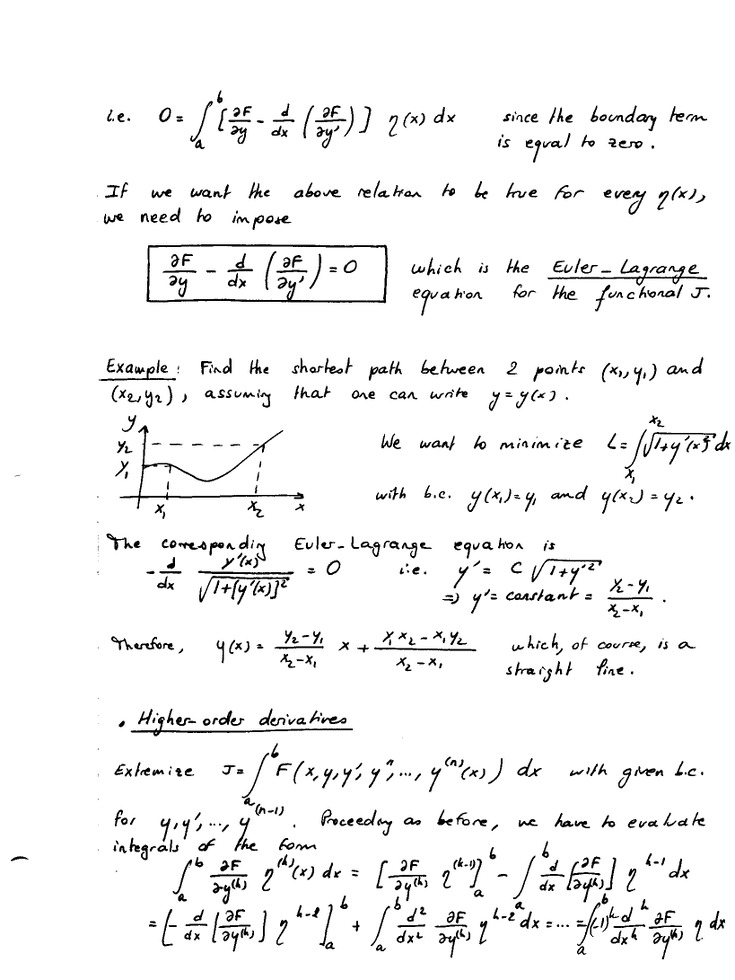 i.e. 0 = ∫_a^b [∂F/∂y - d/dx (∂F/∂y')] η(x) dx since the boundary term
is equal to zero.
If we want the above relation to be true for every η(x),
we need to impose
∂F/∂y - d/dx (∂F/∂y') = 0 which is the Euler-Lagrange
equation for the functional J.
Example: Find the shortest path between 2 points (x₁, y₁) and
(x₂, y₂), assuming that one can write y = y(x).
y
y₂
y₁
x₁ x₂ x
We want to minimize L = ∫_{x₁}^{x₂} √(1+y'(x)²) dx
with b.c. y(x₁)=y₁ and y(x₂)=y₂.
The correspondig Euler-Lagrange equation is
-d/dx y'(x)/√(1+[y'(x)]²) = 0 i.e. y' = C √(1+y'²)
=> y' = constant = (y₂-y₁)/(x₂-x₁).
Therefore, y(x) = (y₂-y₁)/(x₂-x₁) x + (y₁x₂-x₁y₂)/(x₂-x₁) which, of course, is a
straight line.
• Higher-order derivatives
Extremize J = ∫_a^b F(x, y, y', y'', ..., y^(n)(x)) dx with given b.c.
for y, y', ..., y^(n-1). Proceedig as before, we have to evaluate
integrals of the form
∫_a^b ∂F/∂y^(k) η^(k)(x) dx = [∂F/∂y^(k) η^(k-1)]_a^b - ∫_a^b d/dx [∂F/∂y^(k)] η^{k-1} dx
= [-d/dx [∂F/∂y^(k)] η^{k-2}]_a^b + ∫_a^b d²/dx² ∂F/∂y^(k) η^{k-2} dx = ... = ∫_a^b (-1)^k d^k/dx^k ∂F/∂y^(k) η dx